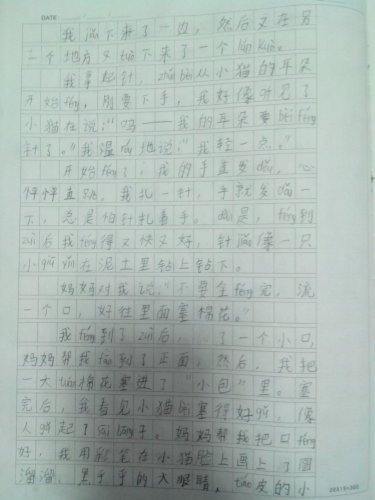 DATE
我jiǎn下来了一边，然后又在另
一个地方又jiǎn下来了一个
我拿起针，zhǔn bèi从小猫的耳朵
开始féng，刚要下手，我好像听见了
小猫在说：“呜——我的耳朵要bèi féng
针了。”我温响地说：“我轻一点。”
开始féng了，我的手直发dǒu，心
怦怦直跳，我扎一针，手就发dǒu一
下，总是怕针扎着手。dàn是，féng到
zuì后我féng得又快又好，针jiù像一只
小qiū yǐn在泥土里钻上钻下。
妈妈对我说：“不要全féng完，流
一个口，好往里面塞棉花。”
我féng到了zuì后，了一个小口，
妈妈帮我fān到了正面，然后，我把
一大tuán棉花塞进了“小包”里。塞
完后，我看见小猫bèi塞得好xiàng，像
人xiàng起了子。妈妈帮我把口féng
好，我用彩笔在小猫脸上画上了圆
溜溜，黑乎乎的大眼睛，táo皮的小